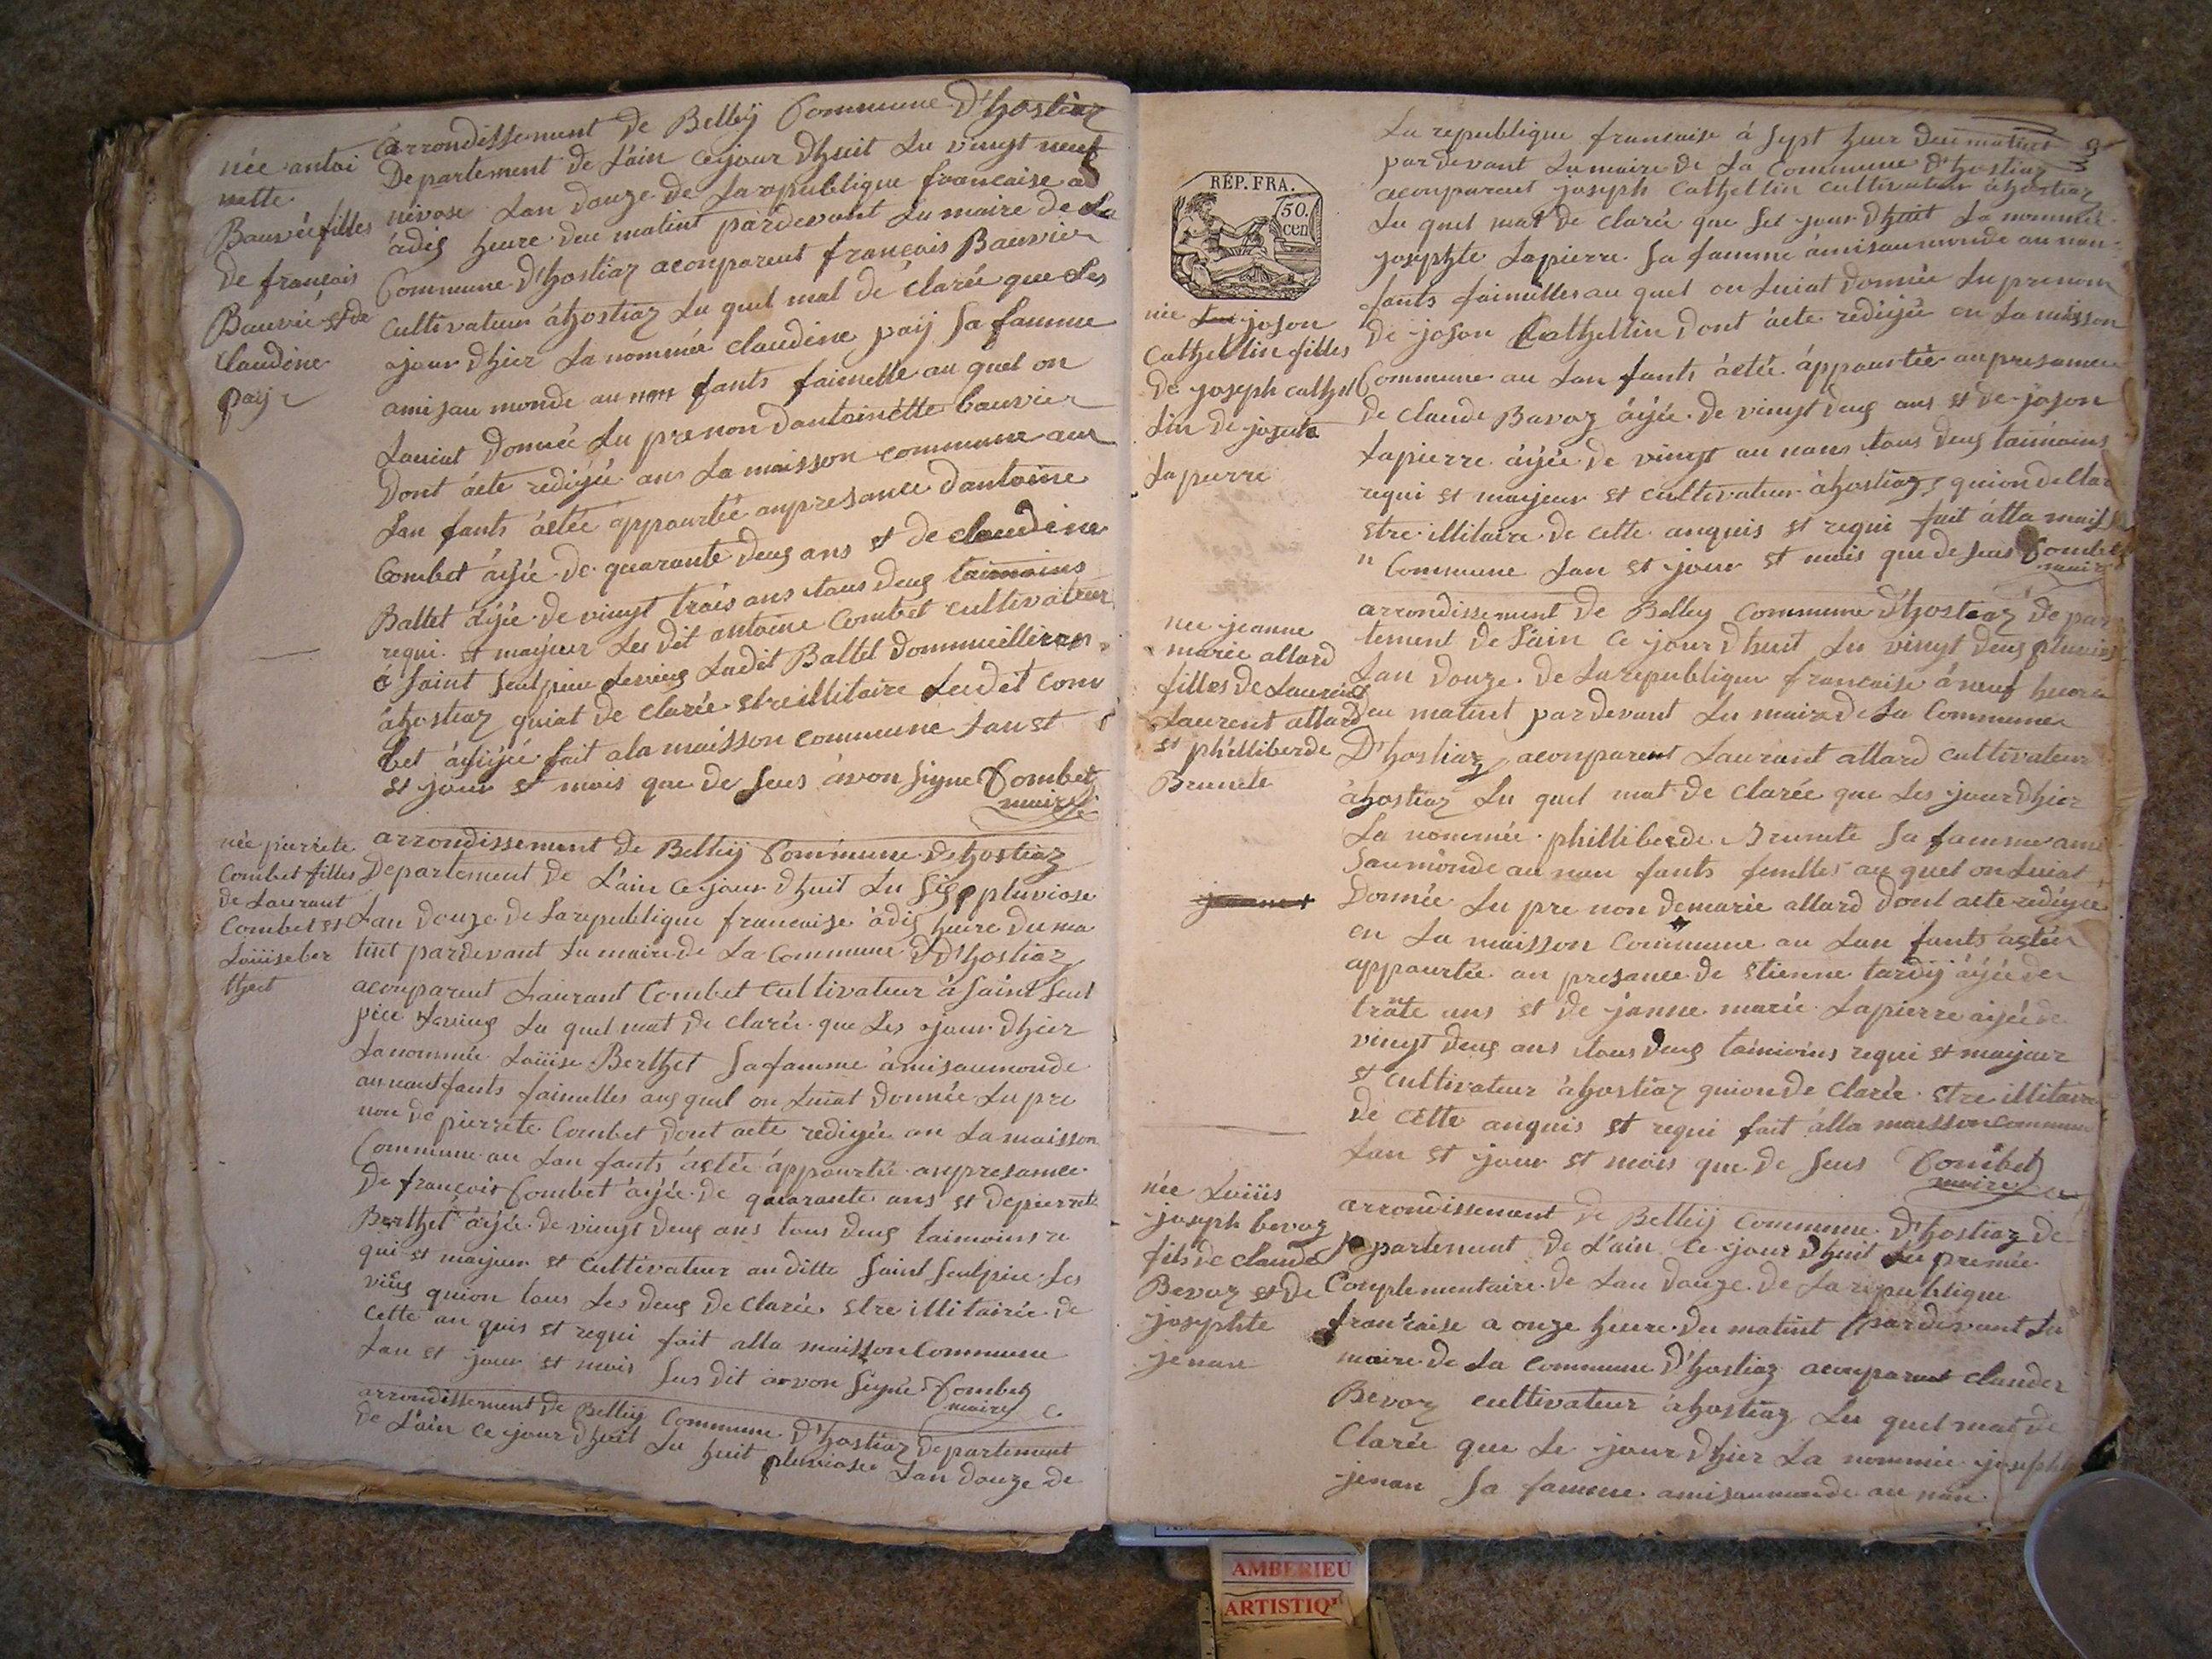 arrondissement de Belleÿ Commune D'hostiaz
née antoi
nette
Bauvié filles
de francois
Bauvié et de
claudine
paÿ
Departement de L'ain ce jour dhuit Lu vingt neuf
nivose Lan douze de La republique francaise
àdis heure deu matint pardevant Lu maire de La
Commune D'hostiaz aconparent francois Bauvier
Cultivateur àhostiaz Lu quel mat de clarée que Les
ajour dhier La nommée claudine paÿ Sa famme
amisau monde au non fants faimelle au quel on
Luiat donnée Lu prenon dantoinétte bauvier
Dont àcte redigée ans La maisson commune aux
Lan fants àctée appourtée anpresance dantoine
Combet àgée de quarante deus ans et de claudine
Ballet àgée de vingt trois ans tous deus taimoins
requi et majeur Les dit antoine Combet cultivateur
à Saint Seulpice Levieus Ladit Ballet dommieillire
àhostiaz quiat de clarée etreillitaire Ledit com
bet àfigée fait ala maisson commune Lan et
et jour et mois que de Seus àvon Signe Combet
maire
née pierrete
Combet filles
de Laurant
Combet et
Loüise ber
thet
arrondissement de Belleÿ Commune D'hostiaz
Departement de L'ain Ce jour dhuit Lu Sis pluviose
Lan douze de La republique francaise àdis heure du ma
tint pardevant Lu maire de La Commune D'hostiaz
aconparent Laurant Combet Cultivateur à Saint Seul
pice Levieus Lu quel mat de clarée que Les jour dhier
La nommée Loüise Berthet Sa famme àmisaumonde
aunautfants faimelles aus quel on Luiat donnée Lu pre
non de pierrete Combet dont acte redigée an La maisson
Commune au Lan fants àctée àppourtée anpresance
de francois Combet àgée de quarante ans et de pierrete
Berthet àgée de vingt deus ans tous deus taimoins re
qui et majeur et Cultivateur au ditte Saint Seulpice Les
vieus quion tous Les deus de clarée etre illitairée de
cette an quis et requi fait alla maisson Commune
Lan et jour et mois Sus dit àvon Signe Combet
maire
arrondissement de Belleÿ Commune D'hostiaz departement
de L'ain Ce jour dhuit Lu huit pluviose Lan douze de
La republique francaise à Sept heur deu matint
pardevant Lu maire de La Commune D'hostiaz
aconparent joseph Cathellin cultivateur àhostiaz
Lu quel mat de clarée que Set jour dhuit La nommée
josephte Lapierre Sa famme àmisaumonde au non
fants faimelles au quel on Luiat donnée Lu prenom
de joson Cathellin dont acte redigée en La maisson
Commune au Lan fants àctée àppourtée anpresance
de claude Bavoz àgée de vingt deus ans et de joson
Lapierre àgée de vingt au nans tous deus taimoins
requi et majeur et cultivateur àhostiaz quion declar
etre illitaire de cette anquis et requi fait àlla maisso
n Commune Lan et jour et mois que de Seus Combet
maire
RÉP. FRA.
50.
cen
née joson
Cathellin filles
De joseph cathel
lin de josephte
Lapierre
née jeanne
marie allard
filles de Laurens
Laurent allard
et philliberde
Brunete
arrondissement de Belley Commune D'hostiaz De par
tement de L'ain Ce jour dhuit Lu vingt deus pluviose
Lan Douze de La republique francaise à neuf heure
deu matint pardevant Lu maire de La Commune
D'hostiaz aconparent Laurant allard cultivateur
àhostiaz Lu quel mat de clarée que Les jour dhier
La nommée philliberde Brunete Sa famme ami
Saumonde au nau fants femelles au quel on Luiat
Jeanne
donnée Lu pre non de marie allard dont acte redigée
en La maisson Commune au Lan fants àctée
appourtée an presance de Etienne tardÿ àgée de
trate ans et de janne marie Lapierre aigée de
vingt deus ans tous deus taimoins requi et majeur
et cultivateur àhostiaz quion de clarée etre illitaire
de Cette anquis et requi fait àlla maesson commune
Lan et jour et mois que de Seus Combet
maire
née Loüis
joseph bevoz
fils de claude
Bevoz et de
josephte
jenan
arrondissement de Belleÿ Commune D'hostiaz De
partement de L'ain Ce jour dhuit Lu premie
Conplementaire de Lan douze de La republique
francaise a onze heure du matint pardevant Lu
maire de La Commune D'hostiaz aconparent claude
Bevoz cultivateur àhostiaz Lu quel mat de
Clarée que Le jour dhier La nommée joseph
jenan Sa famme amisaumonde au nan
AMBERIEU
ARTISTIQ